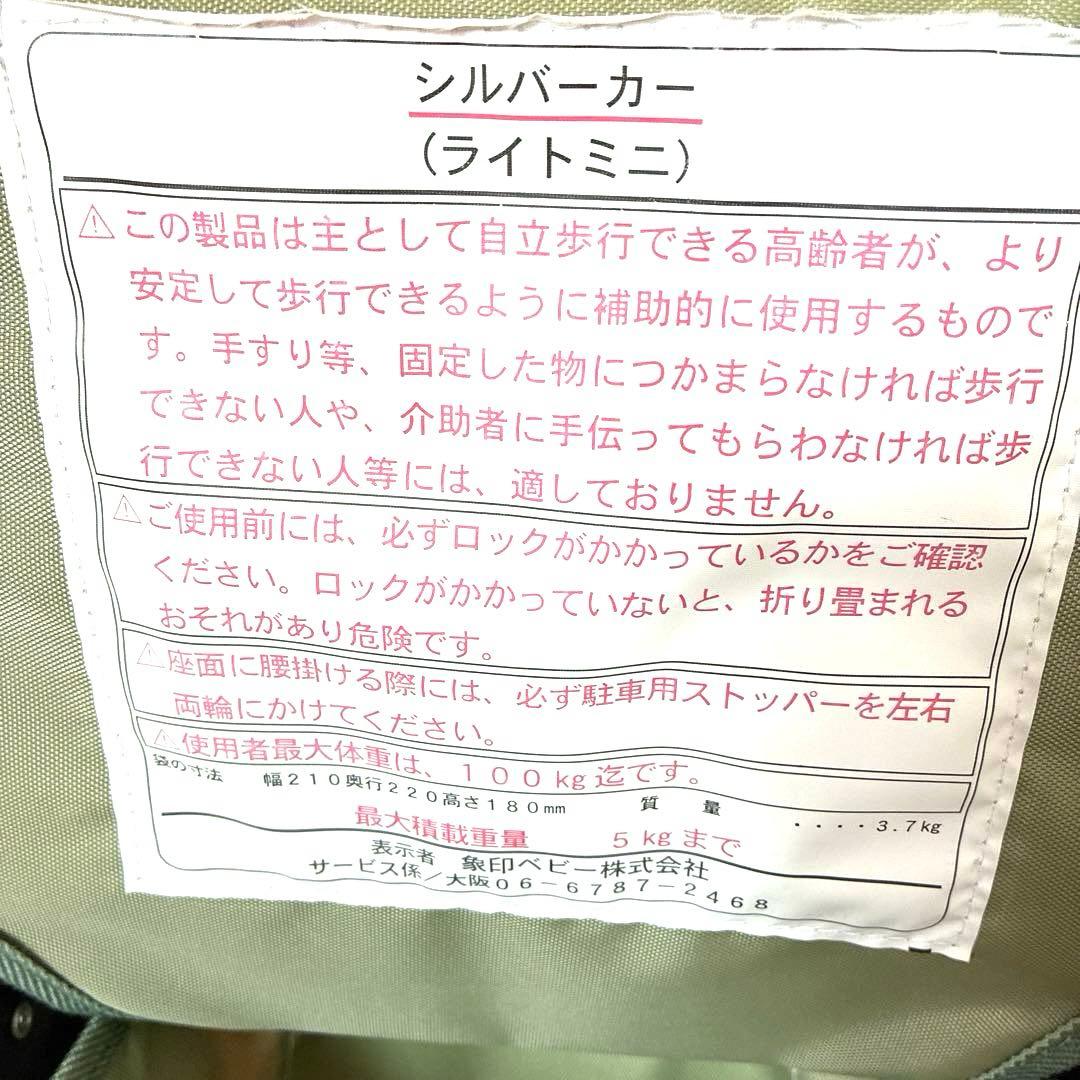 シルバーカー
(ライトミニ)
⚠この製品は主として自立歩行できる高齢者が、より
安定して歩行できるように補助的に使用するもので
す。手すり等、固定した物につかまらなければ歩行
できない人や、介助者に手伝ってもらわなければ歩
行できない人等には、適しておりません。
⚠ご使用前には、必ずロックがかかっているかをご確認
ください。ロックがかかっていないと、折り畳まれる
おそれがあり危険です。
⚠座面に腰掛ける際には、必ず駐車用ストッパーを左右
両輪にかけてください。
⚠使用者最大体重は、100kg迄です。
袋の寸法 幅210奥行220高さ180mm 質量 ‥‥3.7kg
最大積載重量 5kgまで
表示者 象印ベビー株式会社
サービス係/大阪06-6787-2468